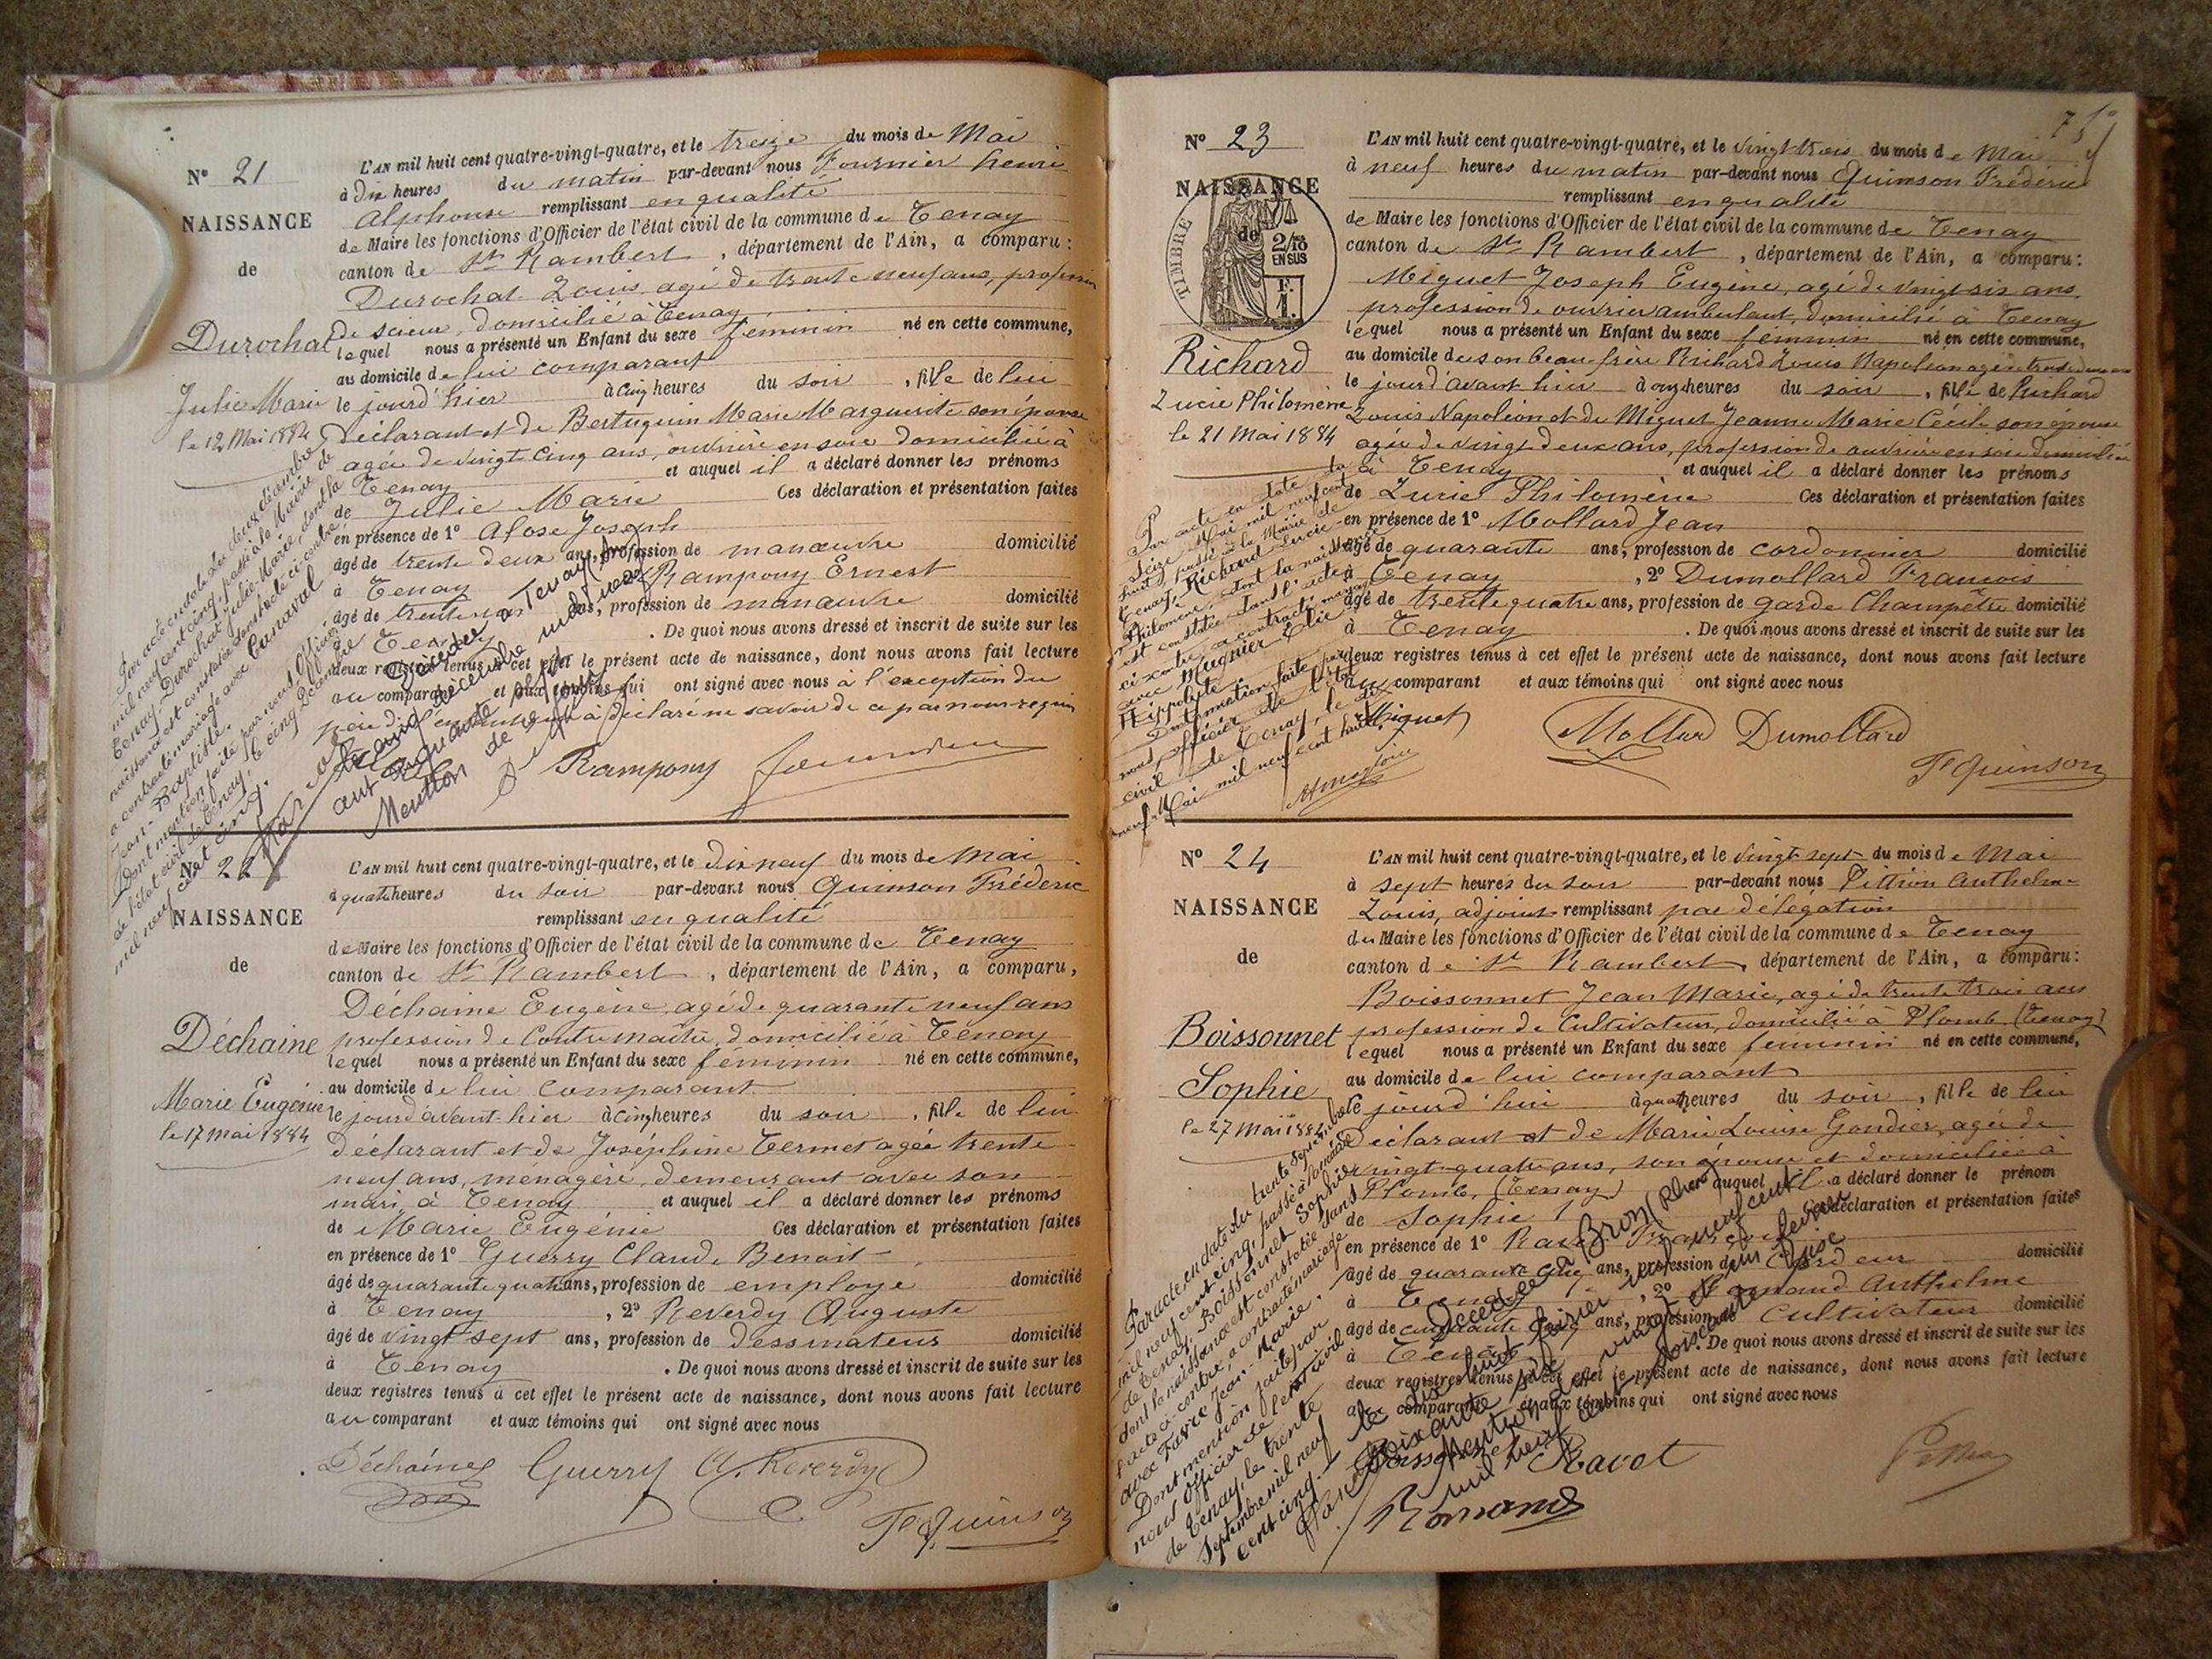 N° 21
NAISSANCE
de
Durochat
Julie Marie
le 12 Mai 1884
L'AN mil huit cent quatre-vingt-quatre, et le treize du mois de Mai
à Dix heures du matin par-devant nous Fournier Henri
Alphonse remplissant en qualité
de Maire les fonctions d'Officier de l'état civil de la commune de Tenay
canton de St Rambert, département de l'Ain, a comparu :
Durochat Louis agé de trente neuf ans, profession
de scieur, domicilié à Tenay
lequel nous a présenté un Enfant du sexe feminin né en cette commune,
au domicile de lui comparant
le jourd'hier à cinq heures du soir, fille de lui
Déclarant et de Bertuquin Marie Marguerite son épouse
agée de vingt cinq ans, ouvrière en soie domiciliée à
Tenay et auquel il a déclaré donner les prénoms
de Julie Marie Ces déclaration et présentation faites
en présence de 1° Alose Joseph
âgé de trente deux ans, profession de manœuvre domicilié
à Tenay Rampony Ernest
âgé de trente un ans, profession de manœuvre domicilié
à Tenay. De quoi nous avons dressé et inscrit de suite sur les
deux registres tenus à cet effet le présent acte de naissance, dont nous avons fait lecture
au comparant et aux témoins qui ont signé avec nous à l'exception du
père de l'enfant qui à déclaré ne savoir de ce par nous requis
Rampony
Par acte en date du deux décembre
mil neuf cent cinq, passé à la Mairie de
Tenay, Durochat Julie-Marie, dont la
naissance est constatée dans l'acte ci-contre
a contracté mariage avec Canaval
Jean-Baptiste.
Dont mention faite par nous Officier
de l'état civil de Tenay, le cinq Décembre
mil neuf cent cinq.
Décédée à Tenay (Ain)
le cinq décembre mil neuf
cent cinquante
Mention
N° 22
NAISSANCE
de
Déchaine
Marie Eugénie
le 17 Mai 1884
L'AN mil huit cent quatre-vingt-quatre, et le Dix neuf du mois de Mai
à quatre heures du soir par-devant nous Quinson Fréderic
remplissant en qualité
de Maire les fonctions d'Officier de l'état civil de la commune de Tenay
canton de St Rambert, département de l'Ain, a comparu,
Déchaine Eugène, agé de quarante neuf ans
profession de Contremaître, domicilié à Tenay
lequel nous a présenté un Enfant du sexe feminin né en cette commune,
au domicile de lui comparant
le jourd'avant-hier à cinq heures du soir, fille de lui
déclarant et de Joséphine Termet agée trente
neuf ans, ménagère, demeurant avec son
mari, à Tenay et auquel il a déclaré donner les prénoms
de Marie Eugénie Ces déclaration et présentation faites
en présence de 1° Guerry Claude Benoit
âgé de quarante quatre ans, profession de employé domicilié
à Tenay, 2° Reverdy Auguste
âgé de vingt sept ans, profession de Dessinateur domicilié
à Tenay. De quoi nous avons dressé et inscrit de suite sur les
deux registres tenus à cet effet le présent acte de naissance, dont nous avons fait lecture
au comparant et aux témoins qui ont signé avec nous
Déchaine Guerry A. Reverdy
F Quinson
N° 23
NAISSANCE
de
TIMBRE
2/10
EN SUS
F.
1.
Richard
Lucie Philomène
le 21 Mai 1884
L'AN mil huit cent quatre-vingt-quatre, et le vingt-trois du mois de Mai
à neuf heures du matin par-devant nous Quinson Fréderic
remplissant en qualité
de Maire les fonctions d'Officier de l'état civil de la commune de Tenay
canton de St Rambert, département de l'Ain, a comparu :
Miguet Joseph Eugène, agé de vingt six ans,
profession de ouvrier ambulant, domicilié à Tenay
lequel nous a présenté un Enfant du sexe féminin né en cette commune,
au domicile de son beau-frère Richard Louis Napoléon agé de trente deux ans
le jourd'avant hier à onze heures du soir, fille de Richard
Louis Napoléon et de Miguet Jeanne Marie Cécile son épouse
agée de vingt deux ans, profession de ouvrière en soie domiciliée
à Tenay et auquel il a déclaré donner les prénoms
de Lucie Philomène Ces déclaration et présentation faites
en présence de 1° Mollard Jean
âgé de quarante ans, profession de cordonnier domicilié
à Tenay, 2° Dumollard François
âgé de trente quatre ans, profession de garde Champêtre domicilié
à Tenay. De quoi nous avons dressé et inscrit de suite sur les
deux registres tenus à cet effet le présent acte de naissance, dont nous avons fait lecture
au comparant et aux témoins qui ont signé avec nous
Miguet Mollard Dumollard
F Quinson
Par acte en date du
seize Mai mil neuf cent
huit, passé à la Mairie de
Tenay, Richard Lucie
Philomène, dont la naissance
est constatée dans l'acte
ci-contre, a contracté mariage
avec Mugnier Elie
Hippolyte.
Dont mention faite par
nous, officier de l'état
civil de Tenay, le dix
neuf Mai mil neuf cent huit.
N° 24
NAISSANCE
de
Boissonnet
Sophie
le 27 Mai 1884
L'AN mil huit cent quatre-vingt-quatre, et le vingt-sept du mois de Mai
à sept heures du soir par-devant nous Pittion Anthelme
Louis, adjoint remplissant par délégation
du Maire les fonctions d'Officier de l'état civil de la commune de Tenay
canton de St Rambert, département de l'Ain, a comparu :
Boissonnet Jean Marie, agé de trente trois ans
profession de Cultivateur, domicilié à Plomb (Tenay)
lequel nous a présenté un Enfant du sexe feminin né en cette commune,
au domicile de lui comparant
le jourd'hui à quatre heures du soir, fille de lui
Déclarant et de Marie Louise Gondier, agée de
vingt-quatre ans, son épouse et domiciliée à
Plomb, (Tenay) auquel il a déclaré donner le prénom
de Sophie Ces déclaration et présentation faites
en présence de 1° Ravet François
âgé de quarante cinq ans, profession de Cardeur domicilié
à Tenay, 2° Romand Anthelme
âgé de cinquante cinq ans, profession de Cultivateur domicilié
à Tenay. De quoi nous avons dressé et inscrit de suite sur les
deux registres tenus à cet effet le présent acte de naissance, dont nous avons fait lecture
au comparant et aux témoins qui ont signé avec nous
Boissonnet Ravet
Romand
Par acte en date du trente Septembre
mil neuf cent cinq, passé à la mairie
de Tenay, Boissonnet Sophie
dont la naissance est constatée dans
l'acte ci-contre, a contracté mariage
avec Favre Jean-Marie.
Dont mention faite par
nous Officier de l'état civil
de Tenay, le trente
Septembre mil neuf
cent cinq.
Décédée à Bron (Rhône)
le dix huit février mil neuf cent
soixante six
Mention